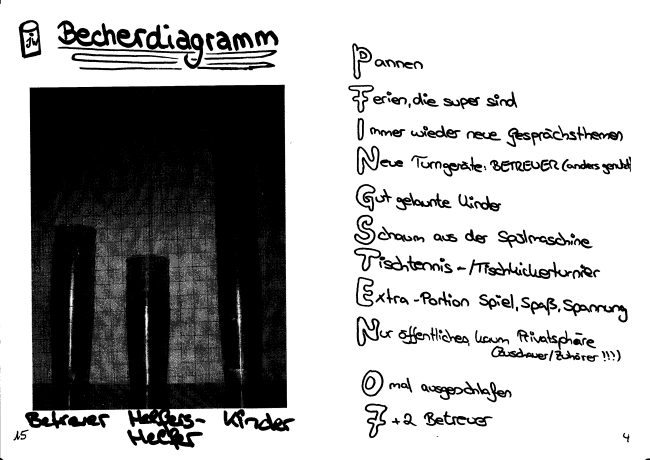 Becherdiagramm
Betreuer Helfers- Kinder
Helfer
15
Pannen
Ferien, die super sind
Immer wieder neue Gesprächsthemen
Neue Turngeräte: BETREUER (anders genutzt)
Gut gelaunte Kinder
Schaum aus der Spülmaschine
Tischtennis-/Tischkickerturnier
Extra-Portion Spiel, Spaß, Spannung
Nur öffentliches, kaum Privatsphäre
(Zuschauer/Zuhörer !!!)
0 mal ausgeschlafen
7 +2 Betreuer
4